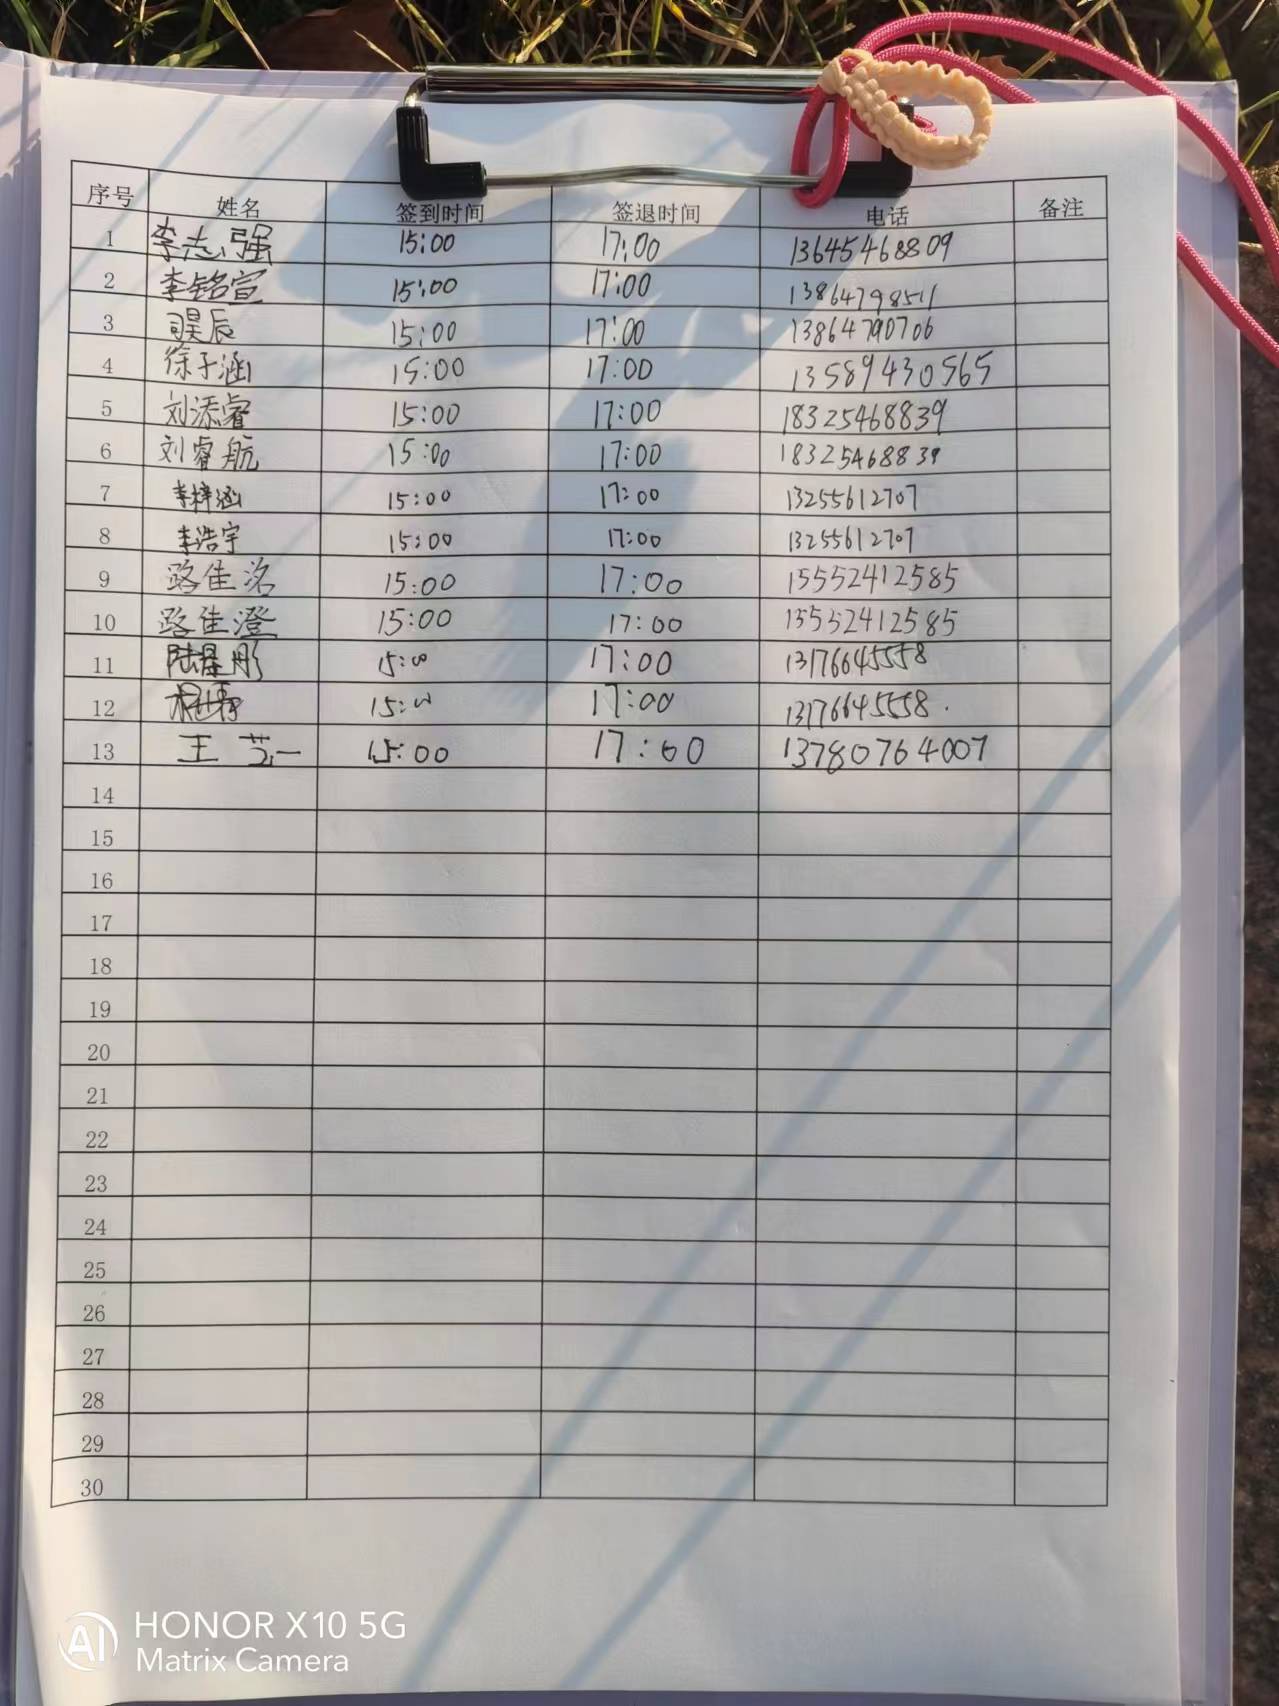 序号 姓名 签到时间 签退时间 电话 备注
1 李志强 15:00 17:00 13645468809
2 李铭宣 15:00 17:00 13864798511
3 昊辰 15:00 17:00 13864790706
4 徐子涵 15:00 17:00 13589430565
5 刘添睿 15:00 17:00 18325468839
6 刘睿航 15:00 17:00 18325468839
7 李梓涵 15:00 17:00 13255612707
8 李浩宇 15:00 17:00 13255612707
9 路佳洺 15:00 17:00 15552412585
10 路佳澄 15:00 17:00 15552412585
11 陆星彤 15:00 17:00 13176645558
12 15:00 17:00 13176645558.
13 王艺一 15:00 17:00 13780764007
14
15
16
17
18
19
20
21
22
23
24
25
26
27
28
29
30
AI HONOR X10 5G
Matrix Camera